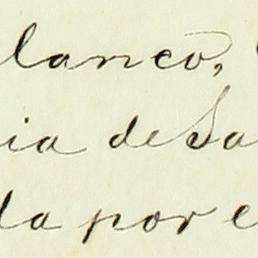 lanco,
ia de Sa
da por e